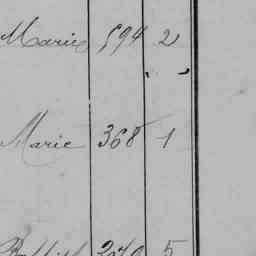 Marie 594 2
Marie 368 1
5